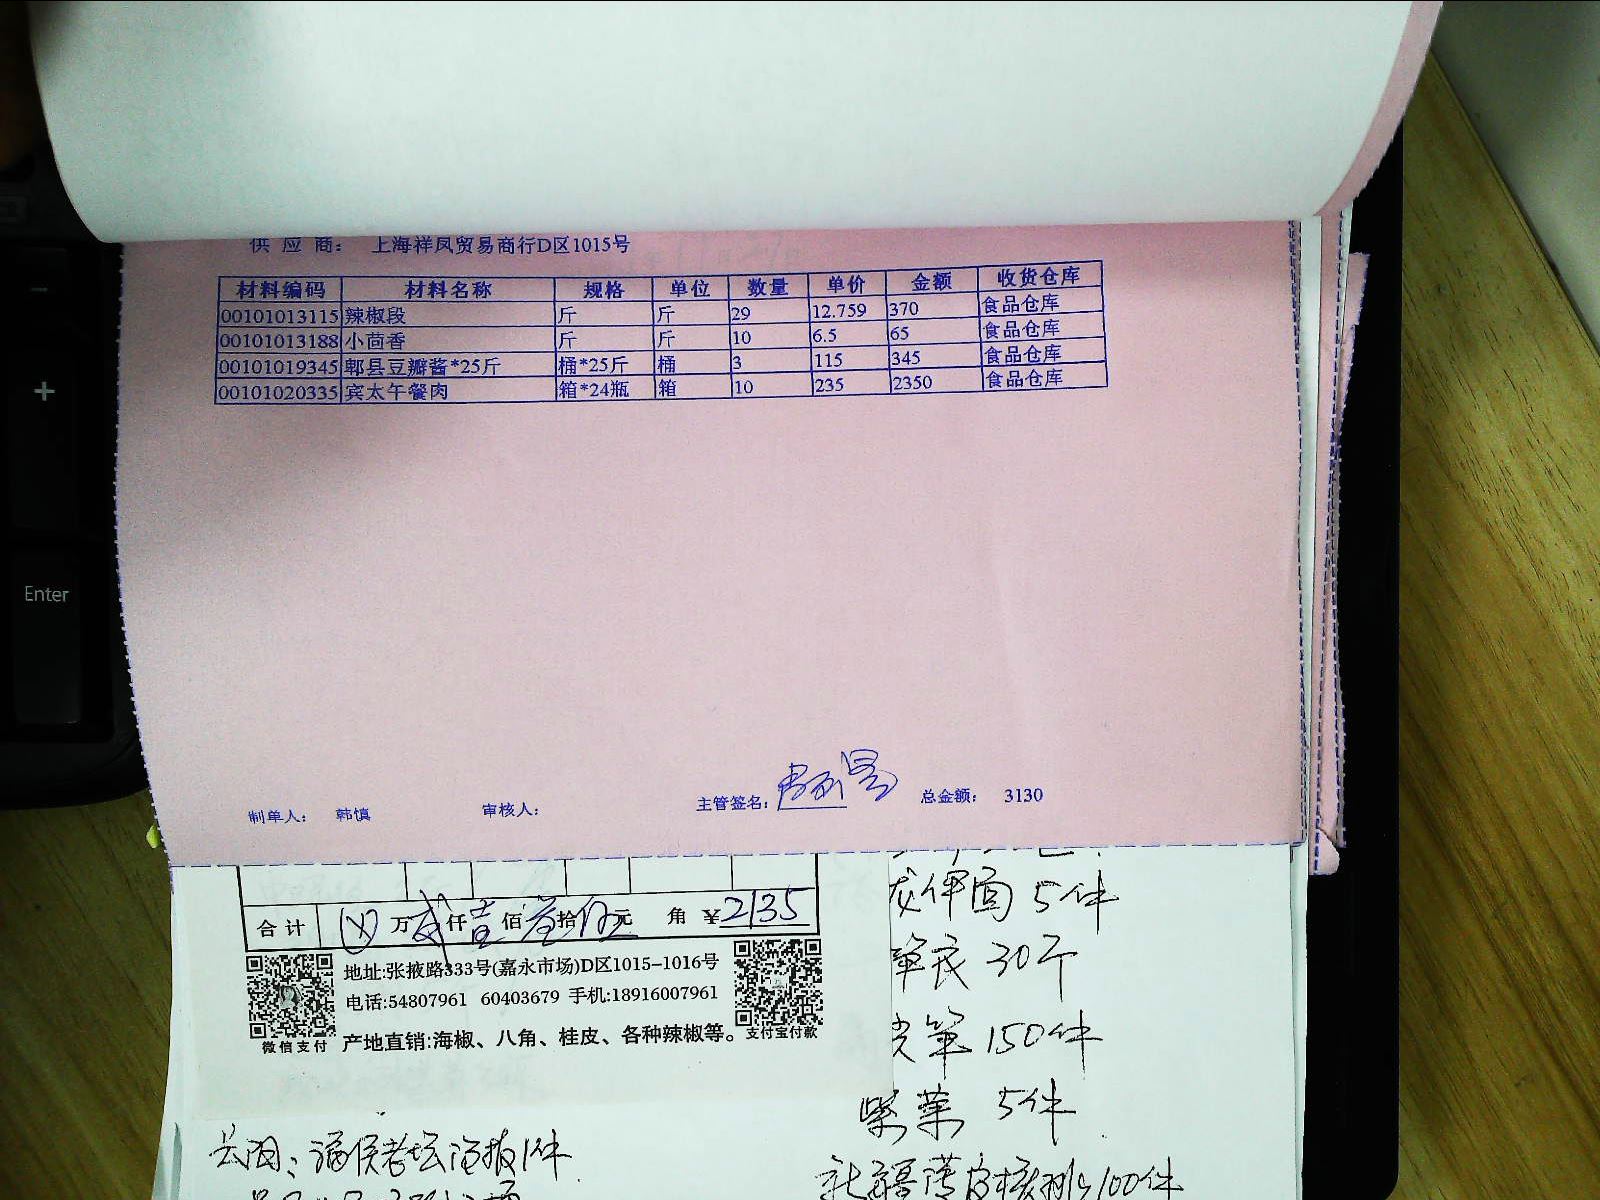 供应商： 上海祥凤贸易商行D区1015号
材料编码 材料名称 规格 单位 数量 单价 金额 收货仓库
00101013115 辣椒段 斤 斤 29 12.759 370 食品仓库
00101013188 小茴香 斤 斤 10 6.5 65 食品仓库
00101019345 郫县豆瓣酱*25斤 桶*25斤 桶 3 115 345 食品仓库
00101020335 宾太午餐肉 箱*24瓶 箱 10 235 2350 食品仓库
制单人： 韩慎 审核人： 主管签名： 总金额： 3130
合计 万 仟壹佰叁拾伍元 角 ¥2135
地址:张掖路333号(嘉永市场)D区1015-1016号
电话:54807961 60403679 手机:18916007961
微信支付 产地直销:海椒、八角、桂皮、各种辣椒等。 支付宝付款
5件
30斤
150件
紫菜 5件
100件
Enter